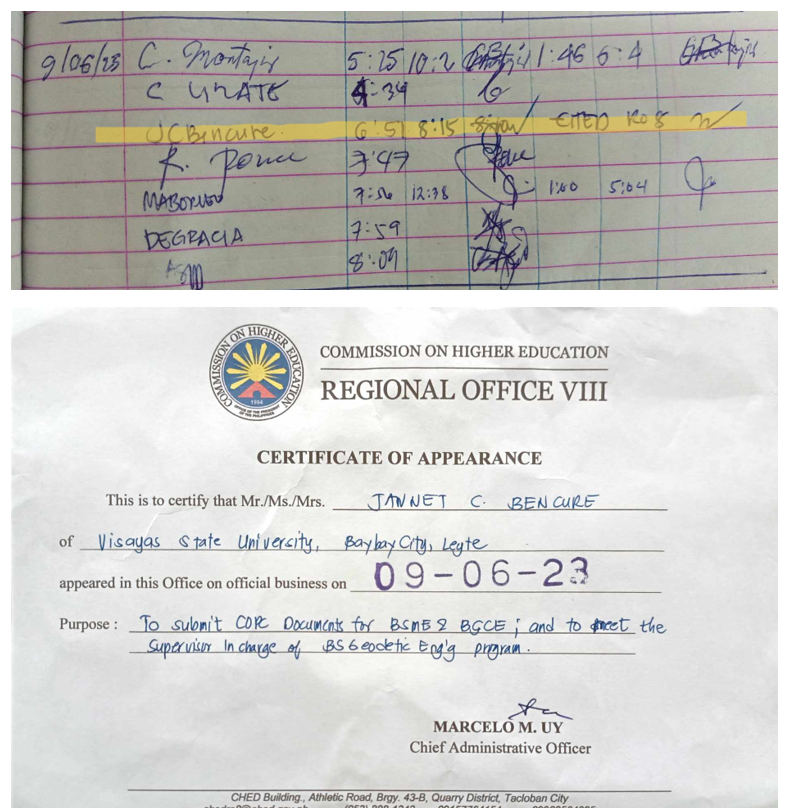 9/06/23 C. Montajis 5:25 10:2 1:46 5:4
C UNATE 4:34
JCBencure. 6:51 8:15 CHED RO 8
R. Ponce 7:47
7:56 12:38 1:00 5:04
DEGRACIA 7:59
8:09
COMMISSION ON HIGHER EDUCATION
1994
OFFICE OF THE PRESIDENT
OF THE PHILIPPINES
COMMISSION ON HIGHER EDUCATION
REGIONAL OFFICE VIII
CERTIFICATE OF APPEARANCE
This is to certify that Mr./Ms./Mrs. JANNET C. BENCURE
of Visayas State University, Baybay City, Leyte
appeared in this Office on official business on 09-06-23
Purpose : To submit COPC Documents for BSME & BGCE ; and to meet the
Supervisor In charge of BS Geodetic Eng'g program.
MARCELO M. UY
Chief Administrative Officer
CHED Building., Athletic Road, Brgy. 43-B, Quarry District, Tacloban City